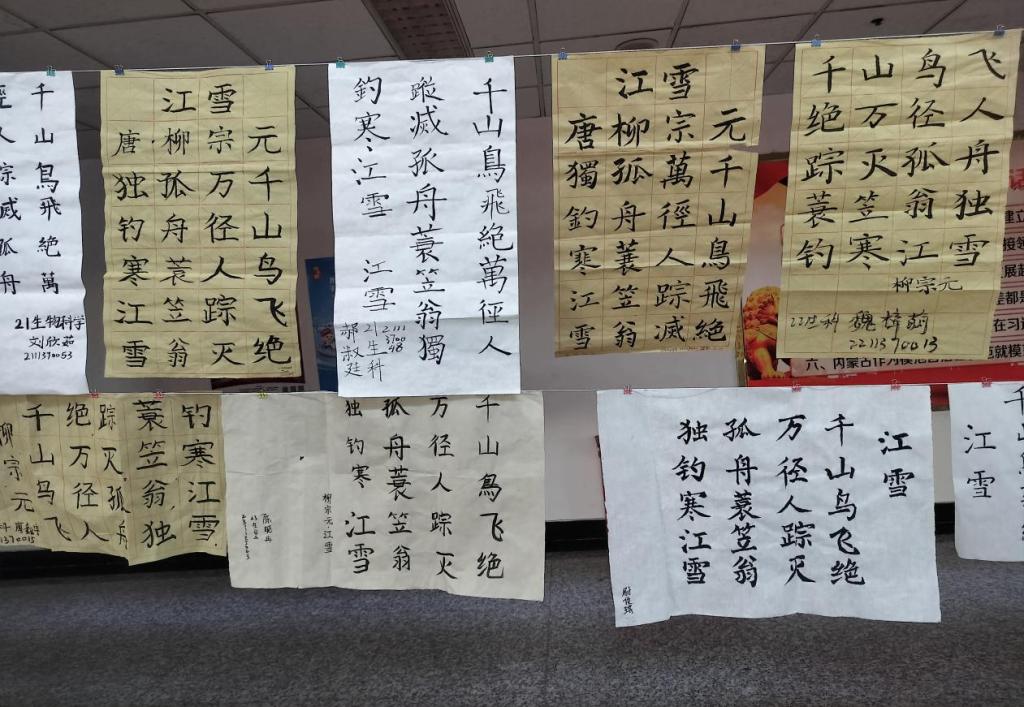 千山鳥飛絶萬
人踪滅孤舟
21生物科学
2111370053
江雪
唐柳宗元
千山鸟飞绝
万径人踪灭
孤舟蓑笠翁
独钓寒江雪
千山鳥飛絶萬徑人
蹤滅孤舟蓑笠翁獨
釣寒江雪 江雪
21生科
2111370048
江雪
唐柳宗元
千山鳥飛絕
萬徑人踪滅
孤舟蓑笠翁
獨釣寒江雪
千山鸟飞
绝万径人
踪灭孤舟
蓑笠翁独
钓寒江雪
柳宗元
22生科
2211370013
六、内蒙古
千山鸟飞
绝万径人
踪灭孤舟
蓑笠翁独
钓寒江雪
柳宗元
千山鳥飞绝
万径人踪灭
孤舟蓑笠翁
独钓寒江雪
柳宗元·江雪
江雪
千山鸟飞绝
万径人踪灭
孤舟蓑笠翁
独钓寒江雪
千
江雪